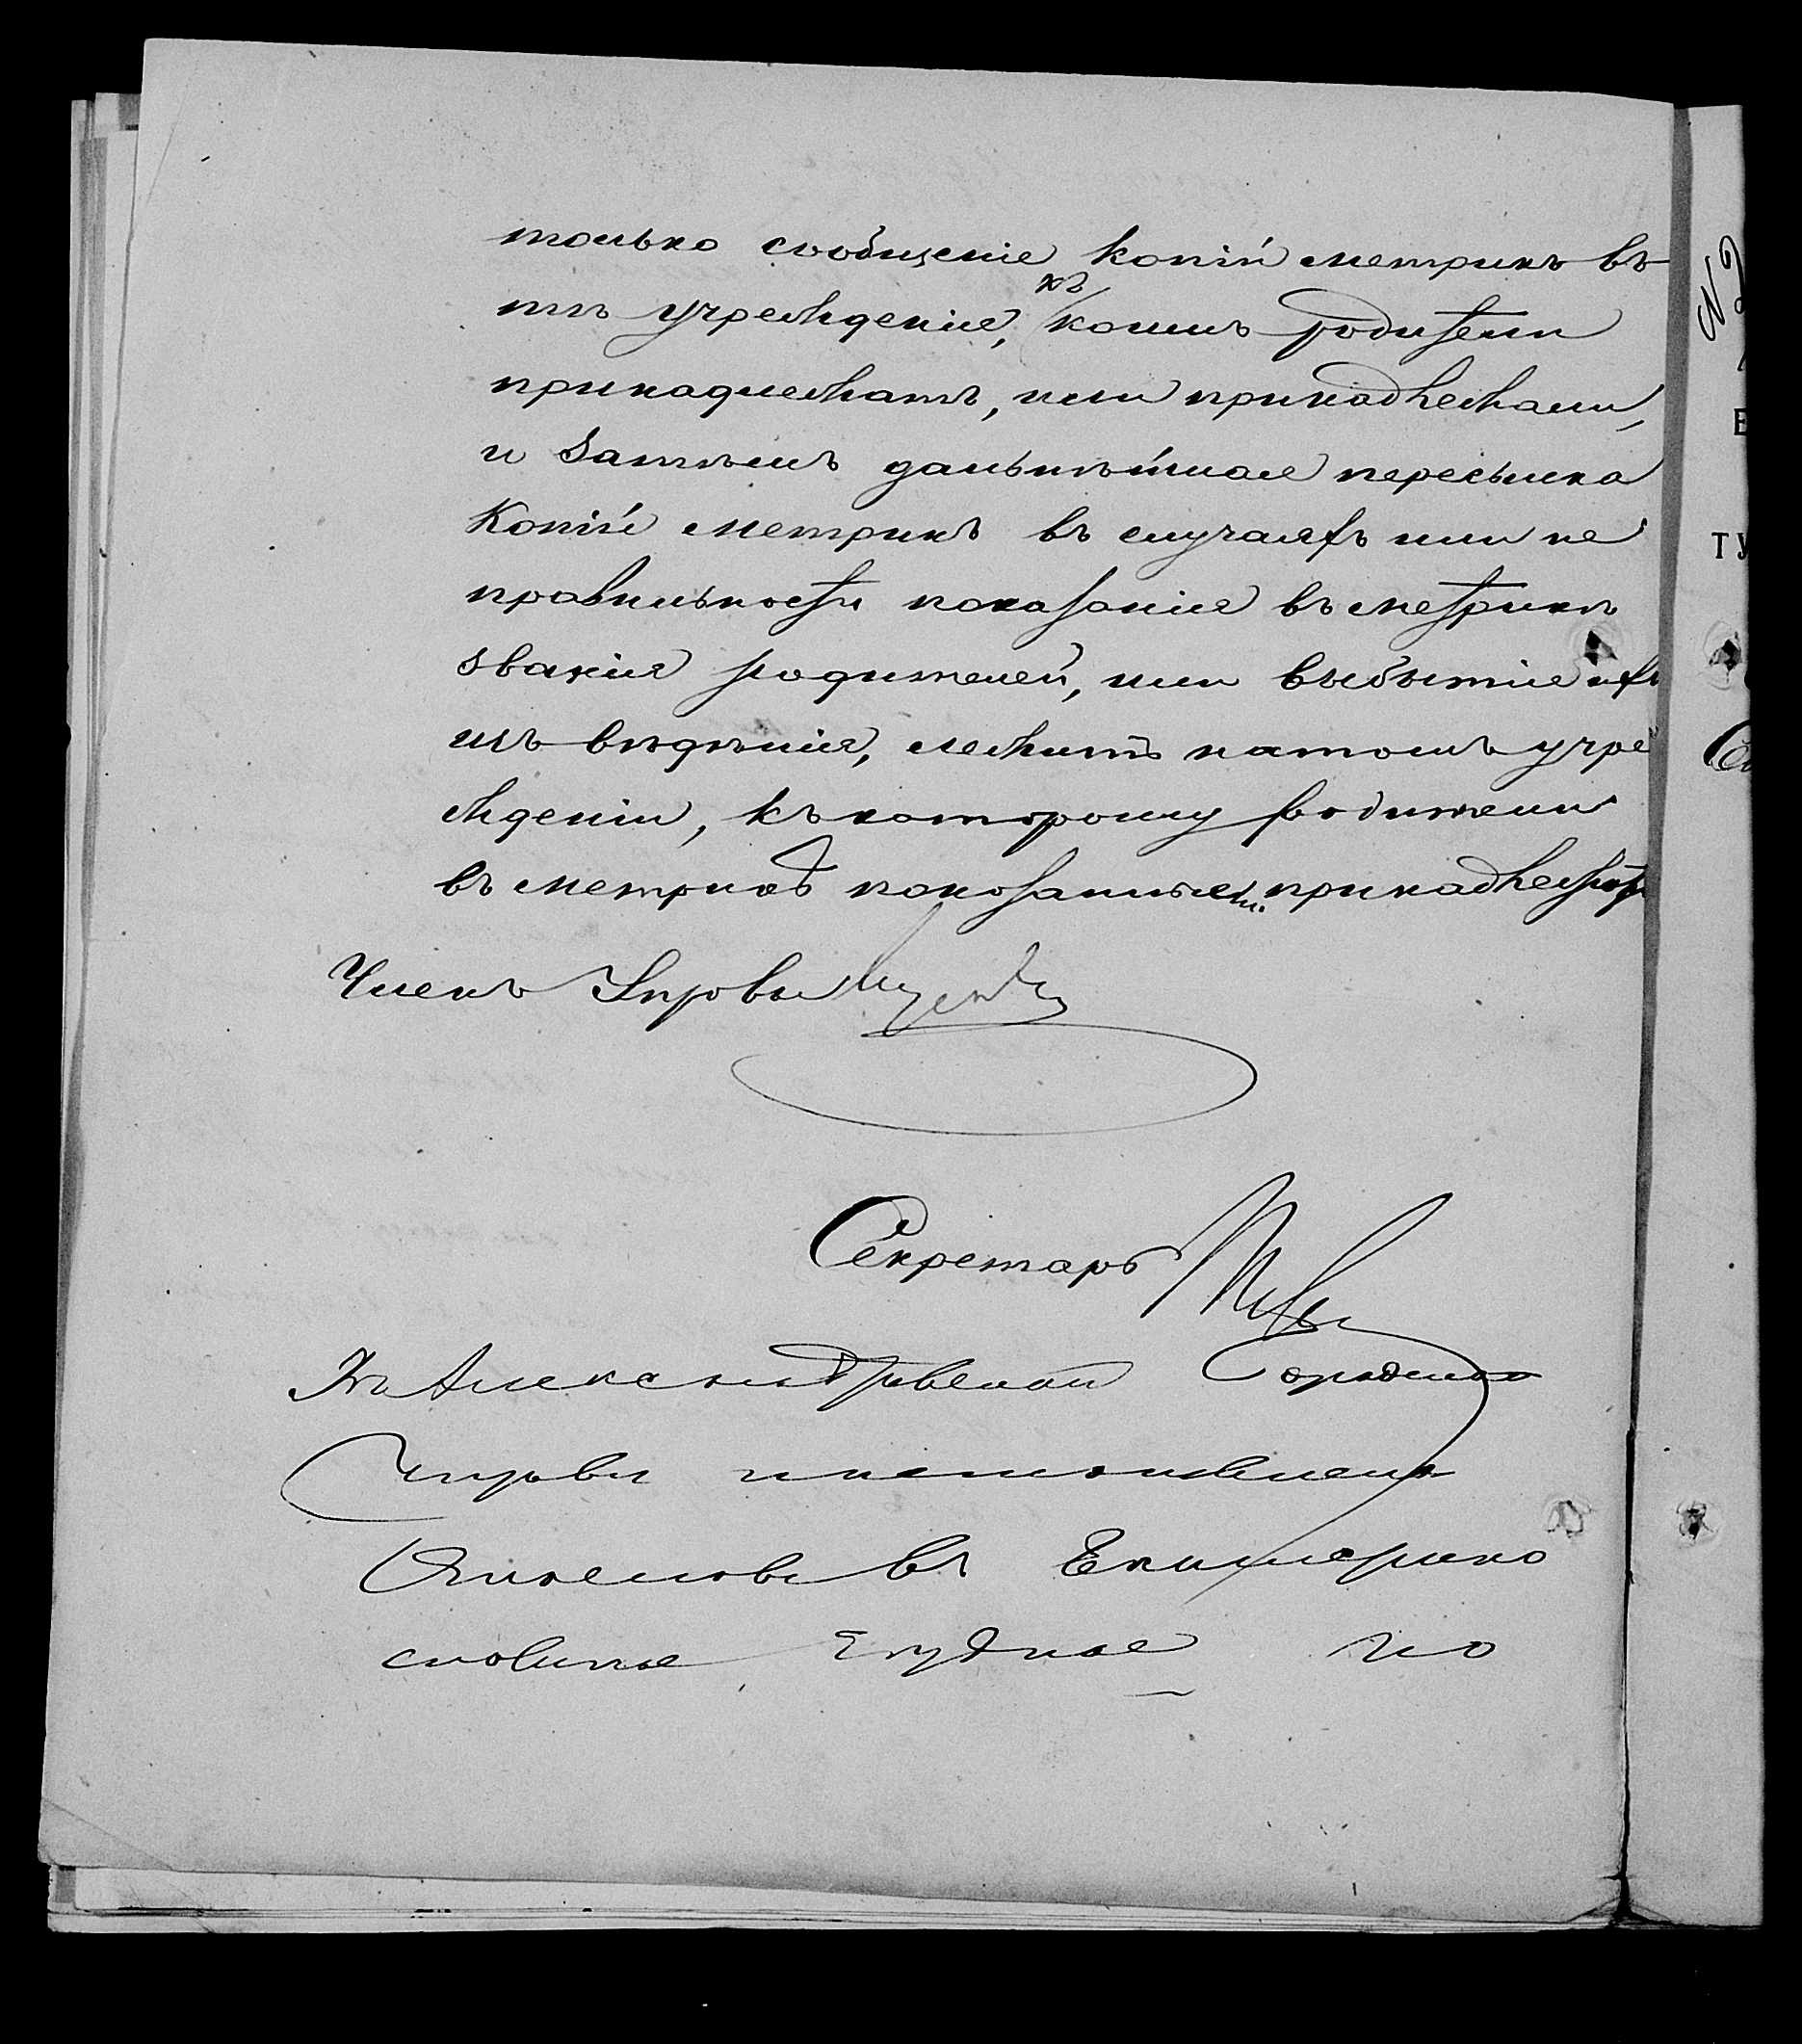 только сообщеніе копій метрикъ въ
тѣ учрежденіе, къ коимъ родители
принадлежатъ, или принадлежали,
и затѣмъ дальнѣйшая пересылка
копій метрикъ въ случаяхъ или не
правильности показанія въ метрикѣ
званія родителей, или выбытія ихъ
изъ вѣденія, лежитъ на томъ учре
жденіи, къ которому родители
въ метрикѣ показанные принадлежатъ
Членъ Управы
Секретарь
Въ Александровской Городской
Управы
въ Екатерино
славское
№
Е
ТУ